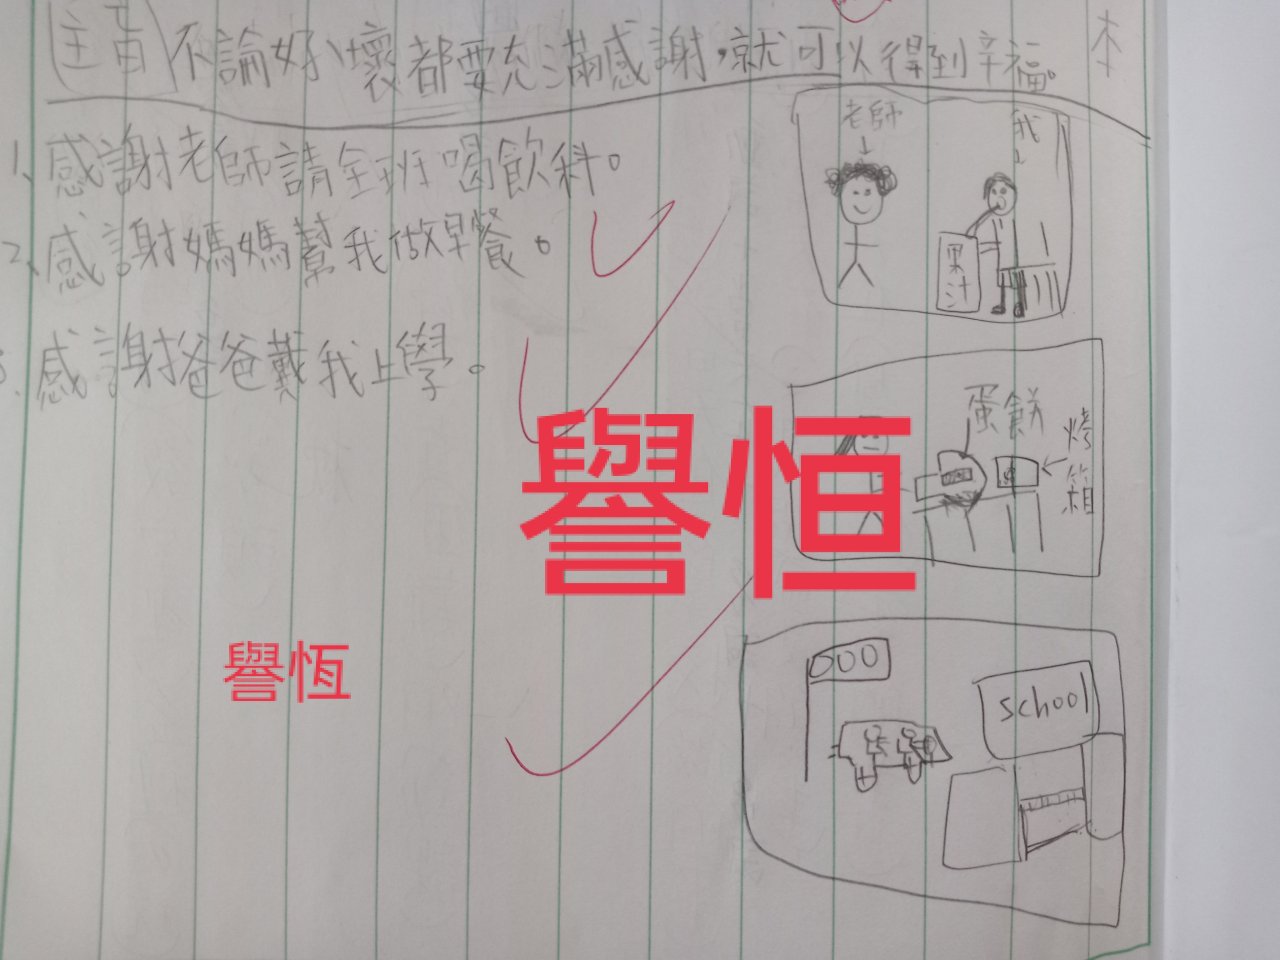 主旨 不論好、壞都要充滿感謝,就可以得到辛福。
本
1、感謝老師請全班喝飲料。
2、感謝媽媽幫我做早餐。
3、感謝爸爸戴我上學。
老師
我
果汁
蛋餅
烤箱
譽恒
譽恆
000
school